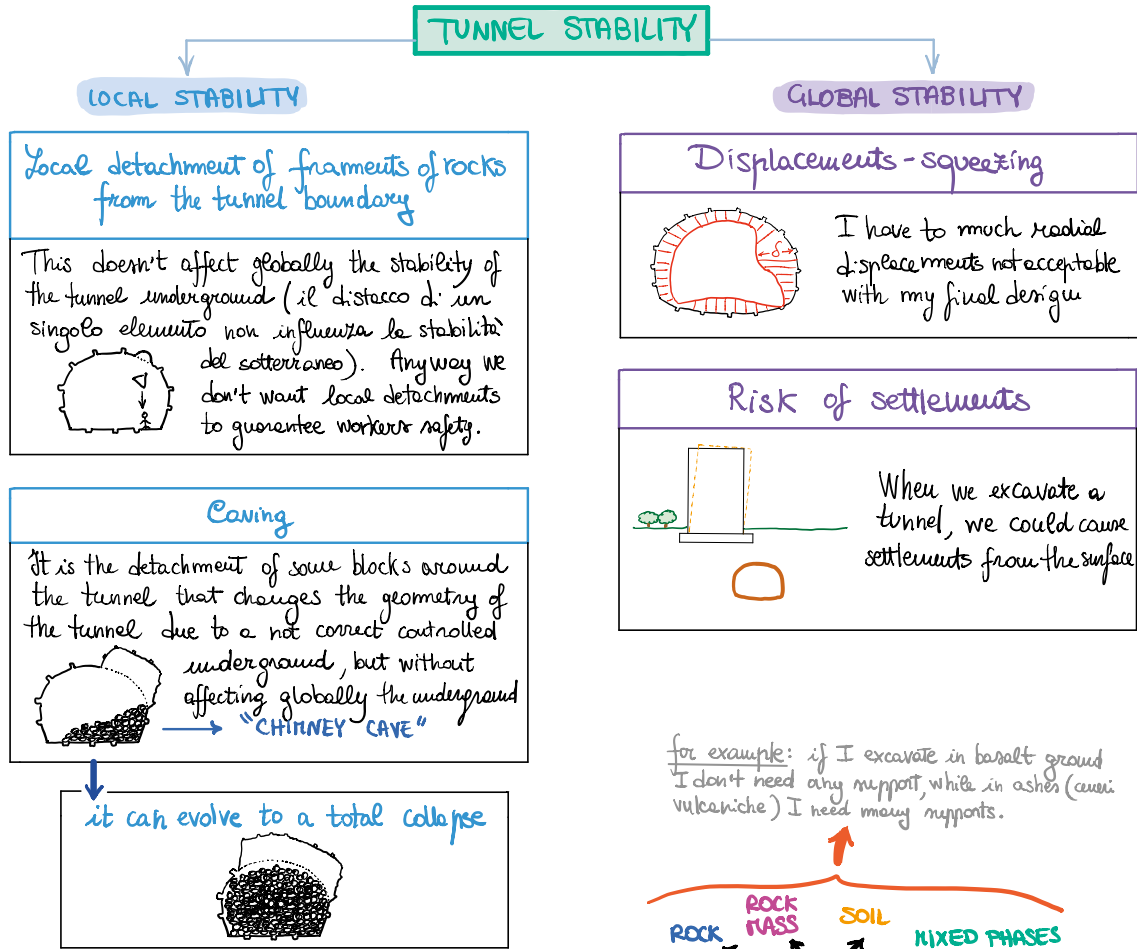 TUNNEL STABILITY
LOCAL STABILITY
Local detachment of framents of rocks
from the tunnel boundary
This doesn't affect globally the stability of
the tunnel underground (il distacco di un
singolo elemento non influenza la stabilità
del sotterraneo). Anyway we
don't want local detachments
to guarantee workers safety.
Caving
It is the detachment of some blocks around
the tunnel that changes the geometry of
the tunnel due to a not correct controlled
underground, but without
affecting globally the underground
"CHIMNEY CAVE"
it can evolve to a total collapse
GLOBAL STABILITY
Displacements - squeezing
δ
I have to much radial
displacements not acceptable
with my final design
Risk of settlements
When we excavate a
tunnel, we could cause
settlements from the surface
for example: if I excavate in basalt ground
I don't need any support, while in ashes (ceneri
vulcaniche) I need many supports.
ROCK
ROCK
MASS
SOIL
MIXED PHASES